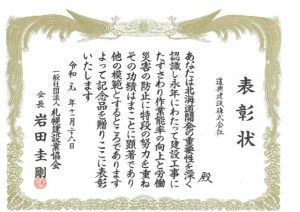 表彰状
道興建設株式会社
殿
あなたは北海道開発の重要性を深く
認識し永年にわたって建設工事に
たずさわり作業能率の向上と労働
災害の防止に特段の努力を重ね
その功績はまことに顕著であり
他の模範とするところであります
よって記念品を贈りここに表彰
いたします
令和元年十一月二十八日
一般社団法人 札幌建設業協会
会長 岩田圭剛